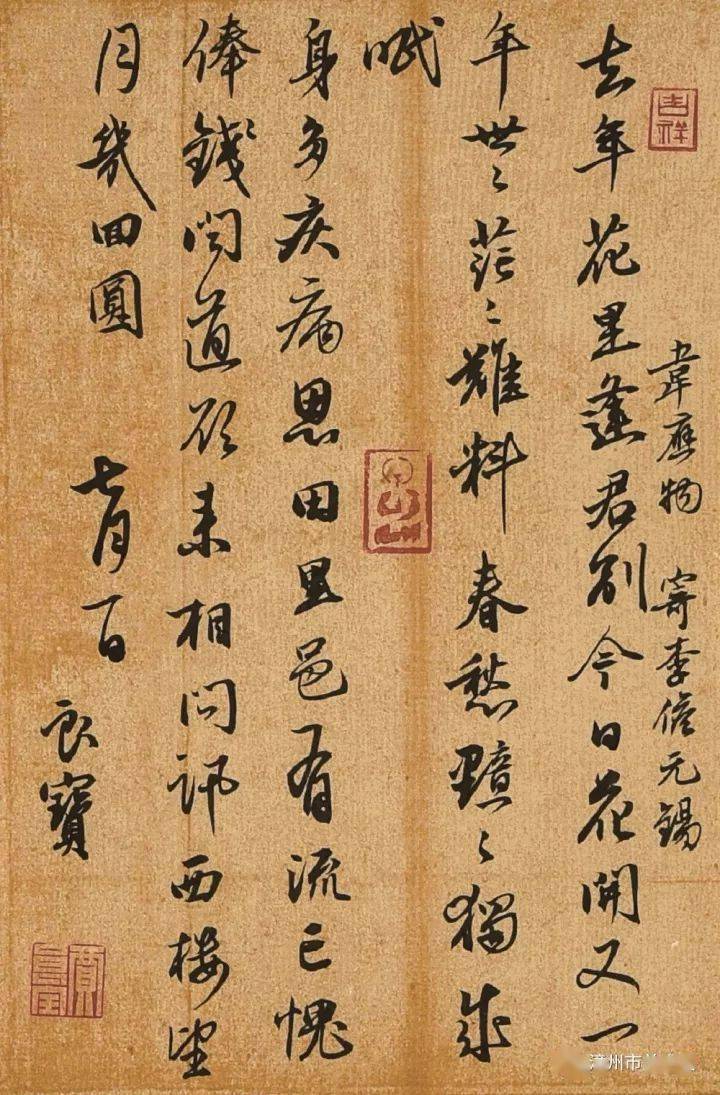 吉祥
韋應物 寄李儋元錫
去年花里逢君别今日花開又一
年世〻茫〻難料春愁黯〻獨成
眠
身多疾病思田里邑有流亡愧
俸錢聞道欲来相問訊西楼望
月幾回圓 七月一日
良寶
漳州市